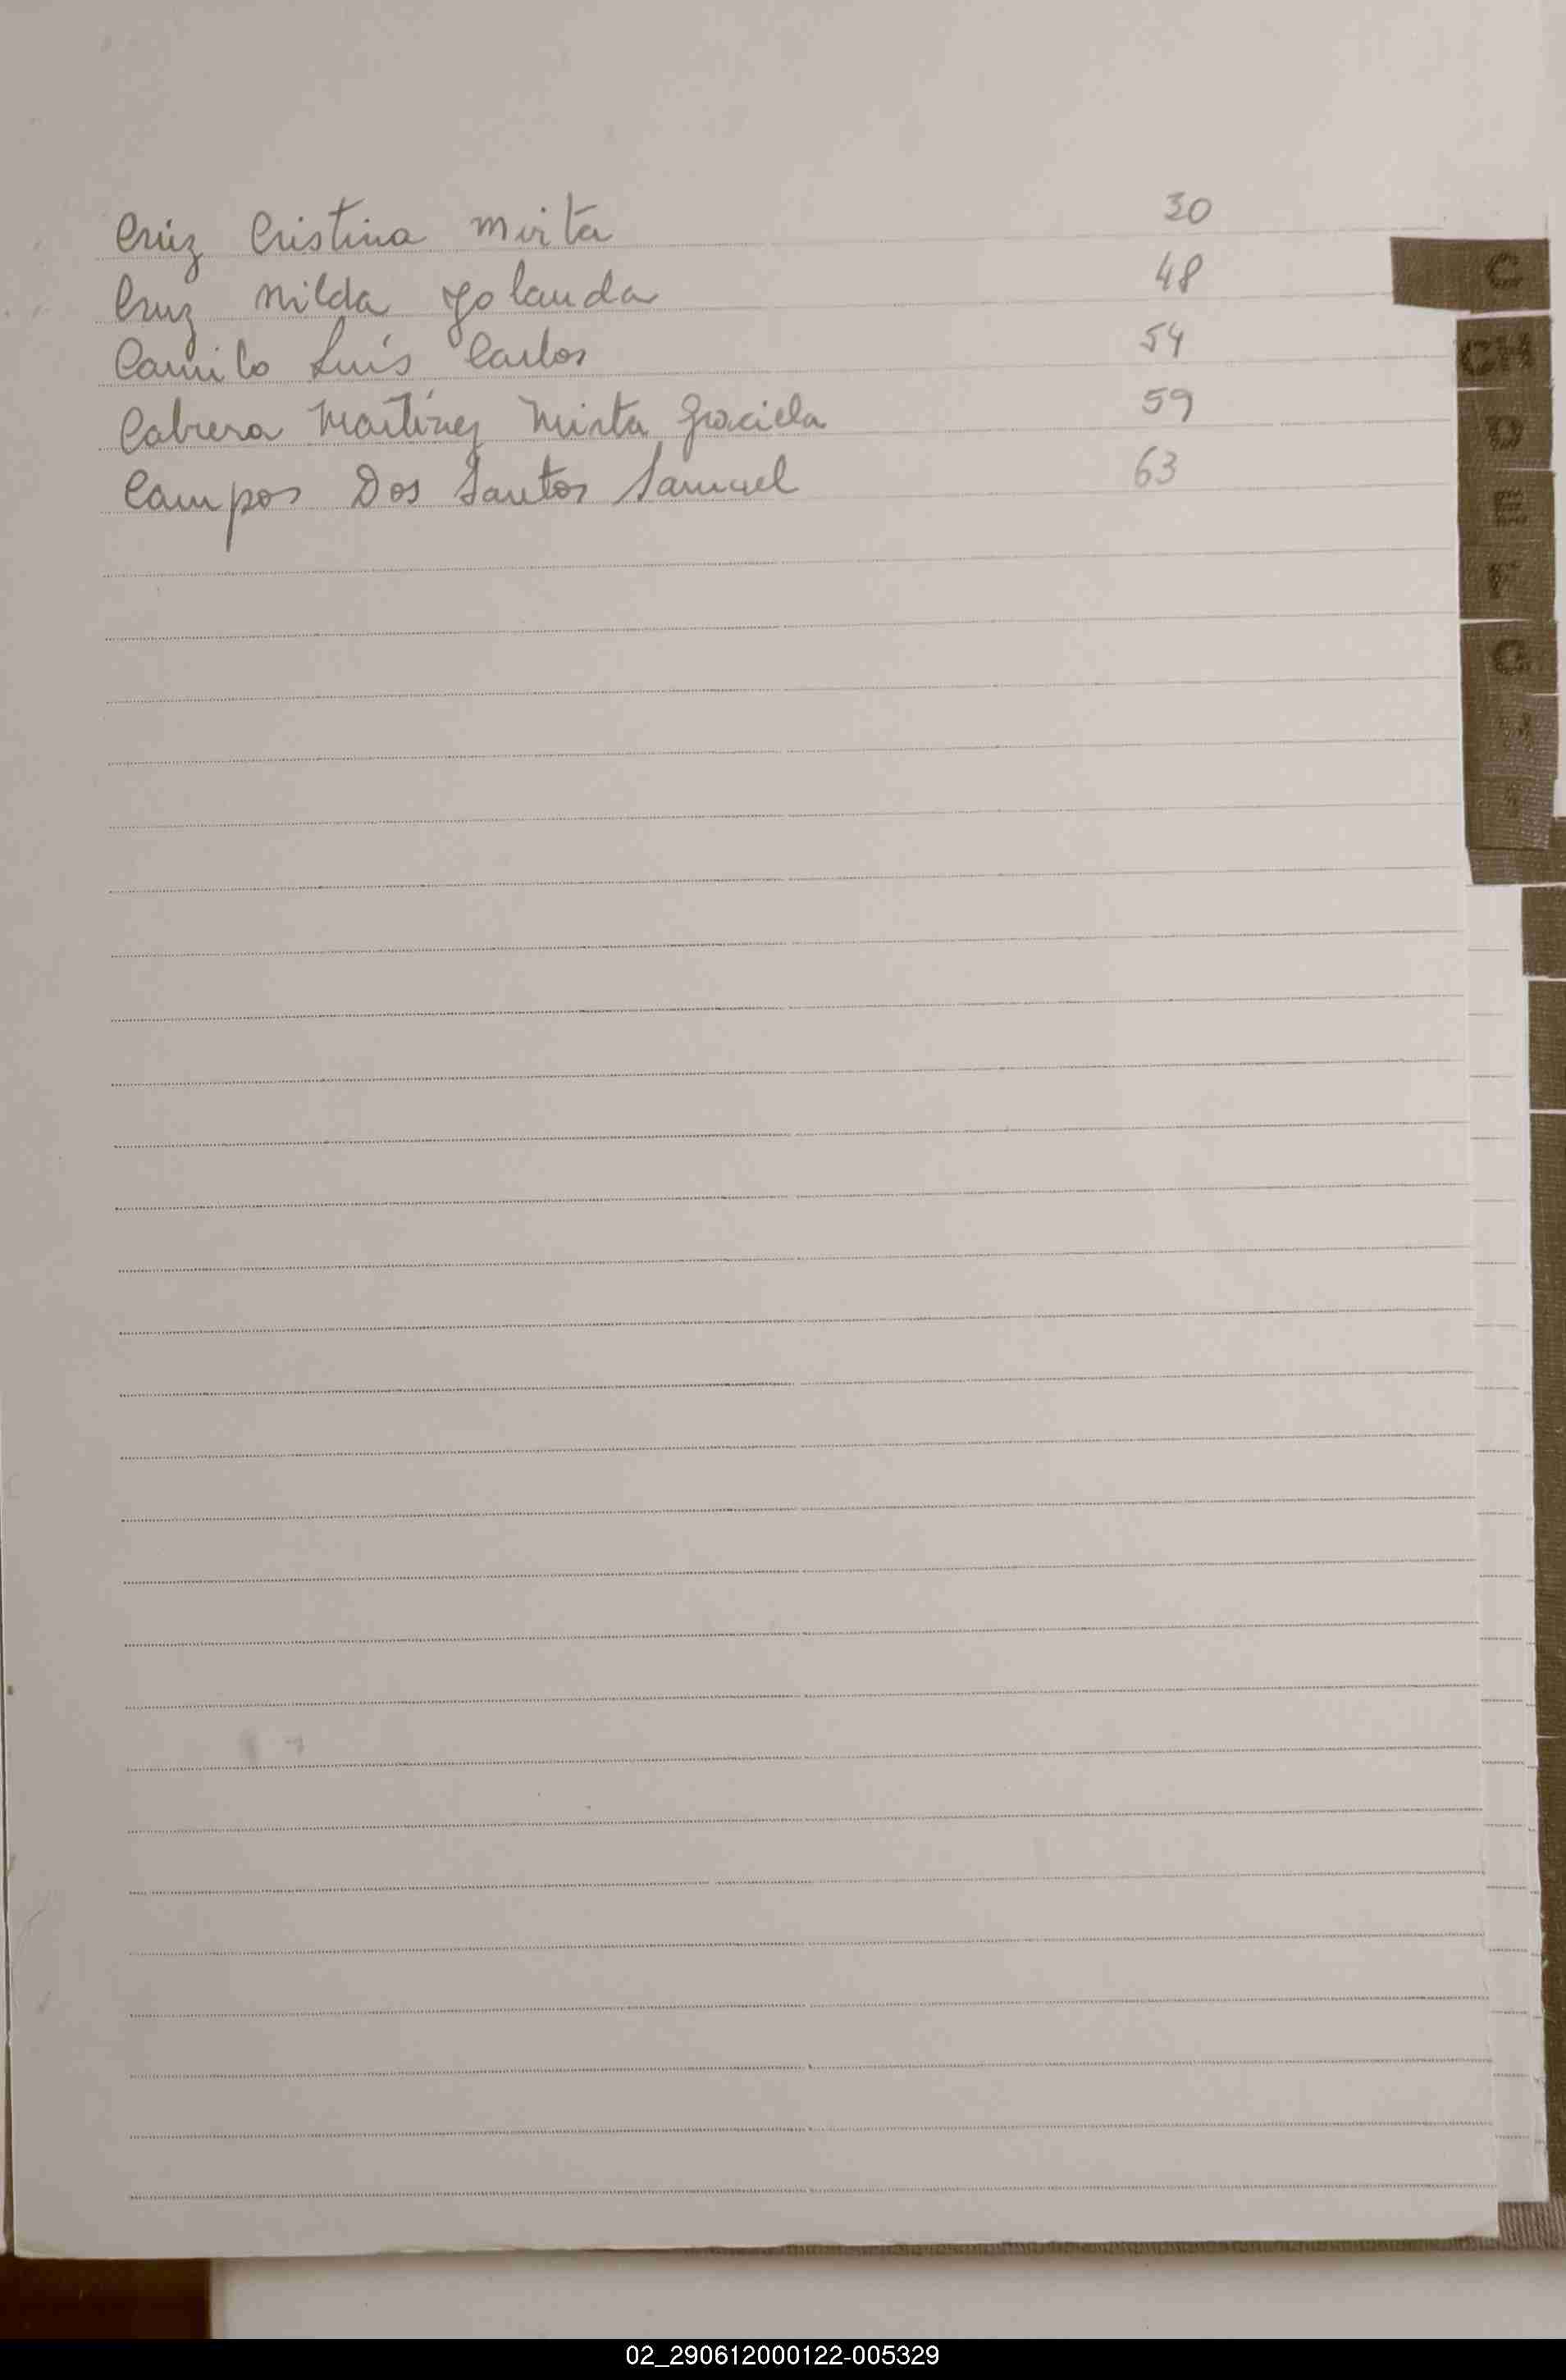 Crúz Cristina Mirta 30
Cruz Nilda Yolanda 48
Camilo Luís Carlos 54
Cabrera Martínez Mirta Graciela 59
Campos Dos Santos Samuel 63
C
CH
D
E
F
G
02_290612000122-005329